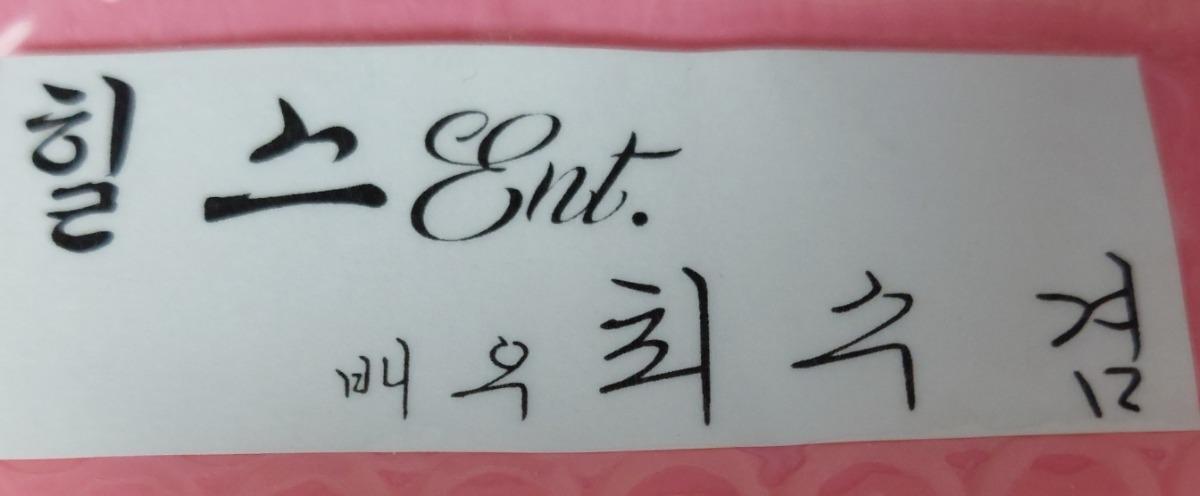 힐스Ent.
배우 최수겸